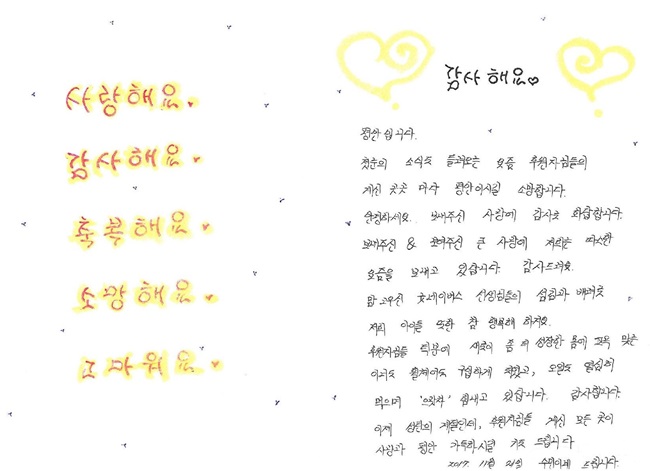 사랑해요
감사해요
축복해요
소망해요
고마워요
감사해요
평안입니다.
첫눈의 소식도 들려오는 요즘 후원자님들의
계신 곳곳 마다 평안이시길 소망합니다.
안녕하세요. 보내주신 사랑에 감사로 화답합니다.
보내주신 & 보여주신 큰 사랑에 저희는 따스한
요즘을 보내고 있습니다. 감사드려요.
맘 고우신 선생님들의 섬김과 배려로
저희 아이들 또한 참 행복해 하져요.
후원자님들 덕분에 좀 더 성장한 몸에 맞는
구입하게 되었고, 오늘도 열심히
먹으며 '으랏차' 힘내고 있습니다. 감사합니다.
이제 계절인데, 후원자님들 계신 모든 곳이
사랑과 평안 가득하시길 기도 드립니다
2017. 11월 드립니다.